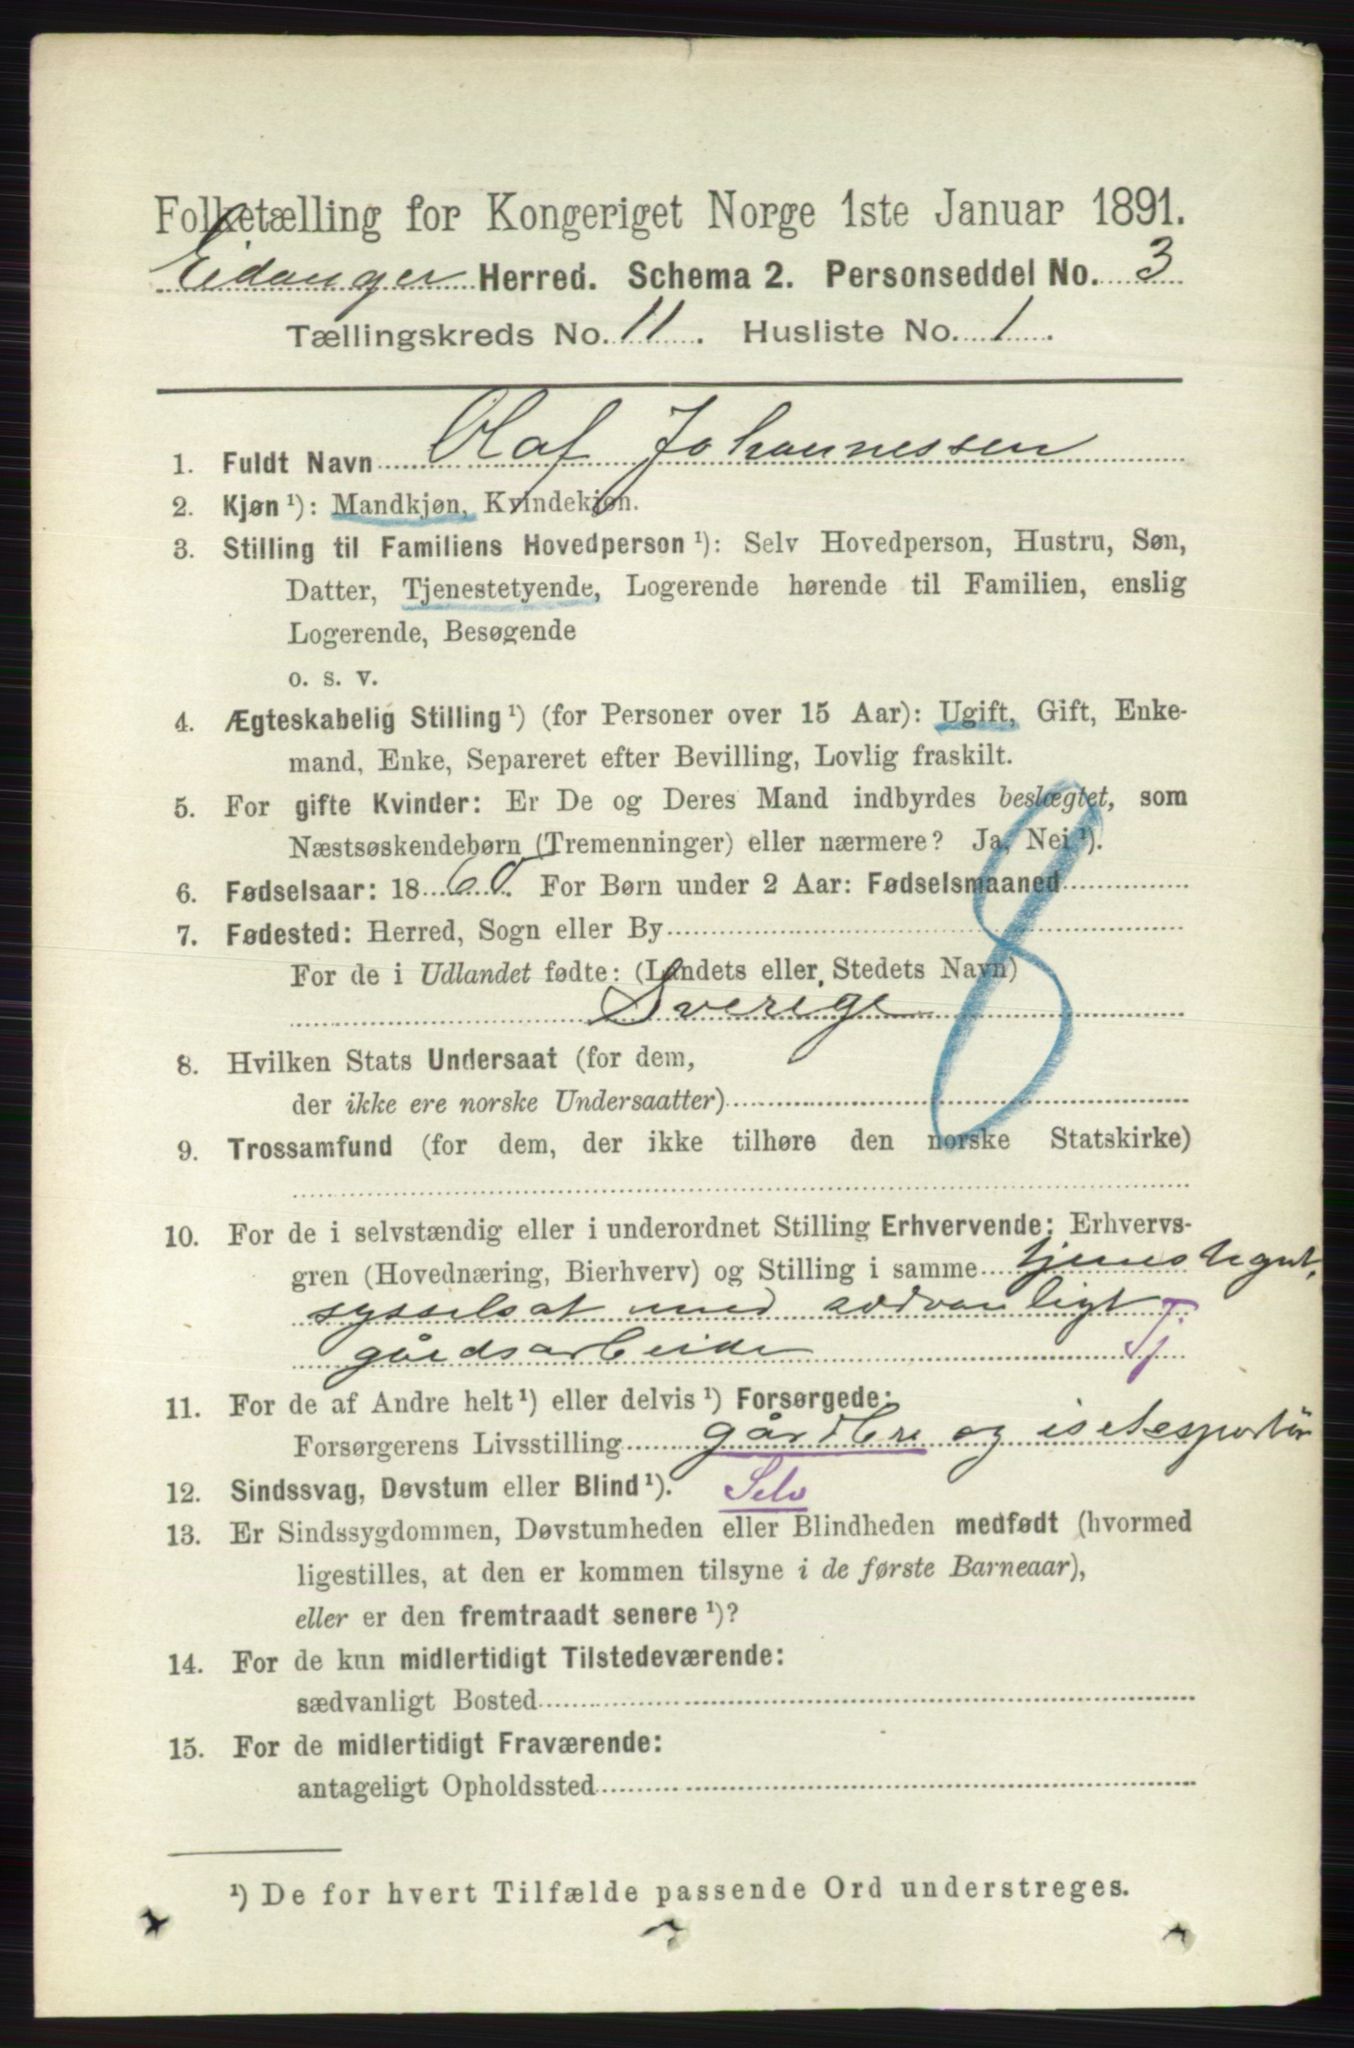 Folketælling for Kongeriget Norge 1ste Januar 1891.
Eidanger Herred. Schema 2. Personseddel No. 3
Tællingskreds No. 11. Husliste No. 1.
1. Fuldt Navn Olaf Johannessen
2. Kjøn ¹): Mandkjøn, Kvindekjøn.
3. Stilling til Familiens Hovedperson ¹): Selv Hovedperson, Hustru, Søn,
Datter, Tjenestetyende, Logerende hørende til Familien, enslig
Logerende, Besøgende
o. s. v.
4. Ægteskabelig Stilling ¹) (for Personer over 15 Aar): Ugift, Gift, Enke-
mand, Enke, Separeret efter Bevilling, Lovlig fraskilt.
5. For gifte Kvinder: Er De og Deres Mand indbyrdes beslægtet, som
Næstsøskendebørn (Tremenninger) eller nærmere? Ja, Nei ¹).
6. Fødselsaar: 1860. For Børn under 2 Aar: Fødselsmaaned
7. Fødested: Herred, Sogn eller By
For de i Udlandet fødte: (Landets eller Stedets Navn)
Sverige
8
8. Hvilken Stats Undersaat (for dem,
der ikke ere norske Undersaatter)
9. Trossamfund (for dem, der ikke tilhøre den norske Statskirke)
10. For de i selvstændig eller i underordnet Stilling Erhvervende: Erhvervs-
gren (Hovednæring, Bierhverv) og Stilling i samme
sysselsat med sædvanligt
gårdsarbeide Tj
11. For de af Andre helt ¹) eller delvis ¹) Forsørgede:
Forsørgerens Livsstilling gårdbr og iseksportör
12. Sindssvag, Døvstum eller Blind ¹). Selv
13. Er Sindssygdommen, Døvstumheden eller Blindheden medfødt (hvormed
ligestilles, at den er kommen tilsyne i de første Barneaar),
eller er den fremtraadt senere ¹)?
14. For de kun midlertidigt Tilstedeværende:
sædvanligt Bosted
15. For de midlertidigt Fraværende:
antageligt Opholdssted
¹) De for hvert Tilfælde passende Ord understreges.